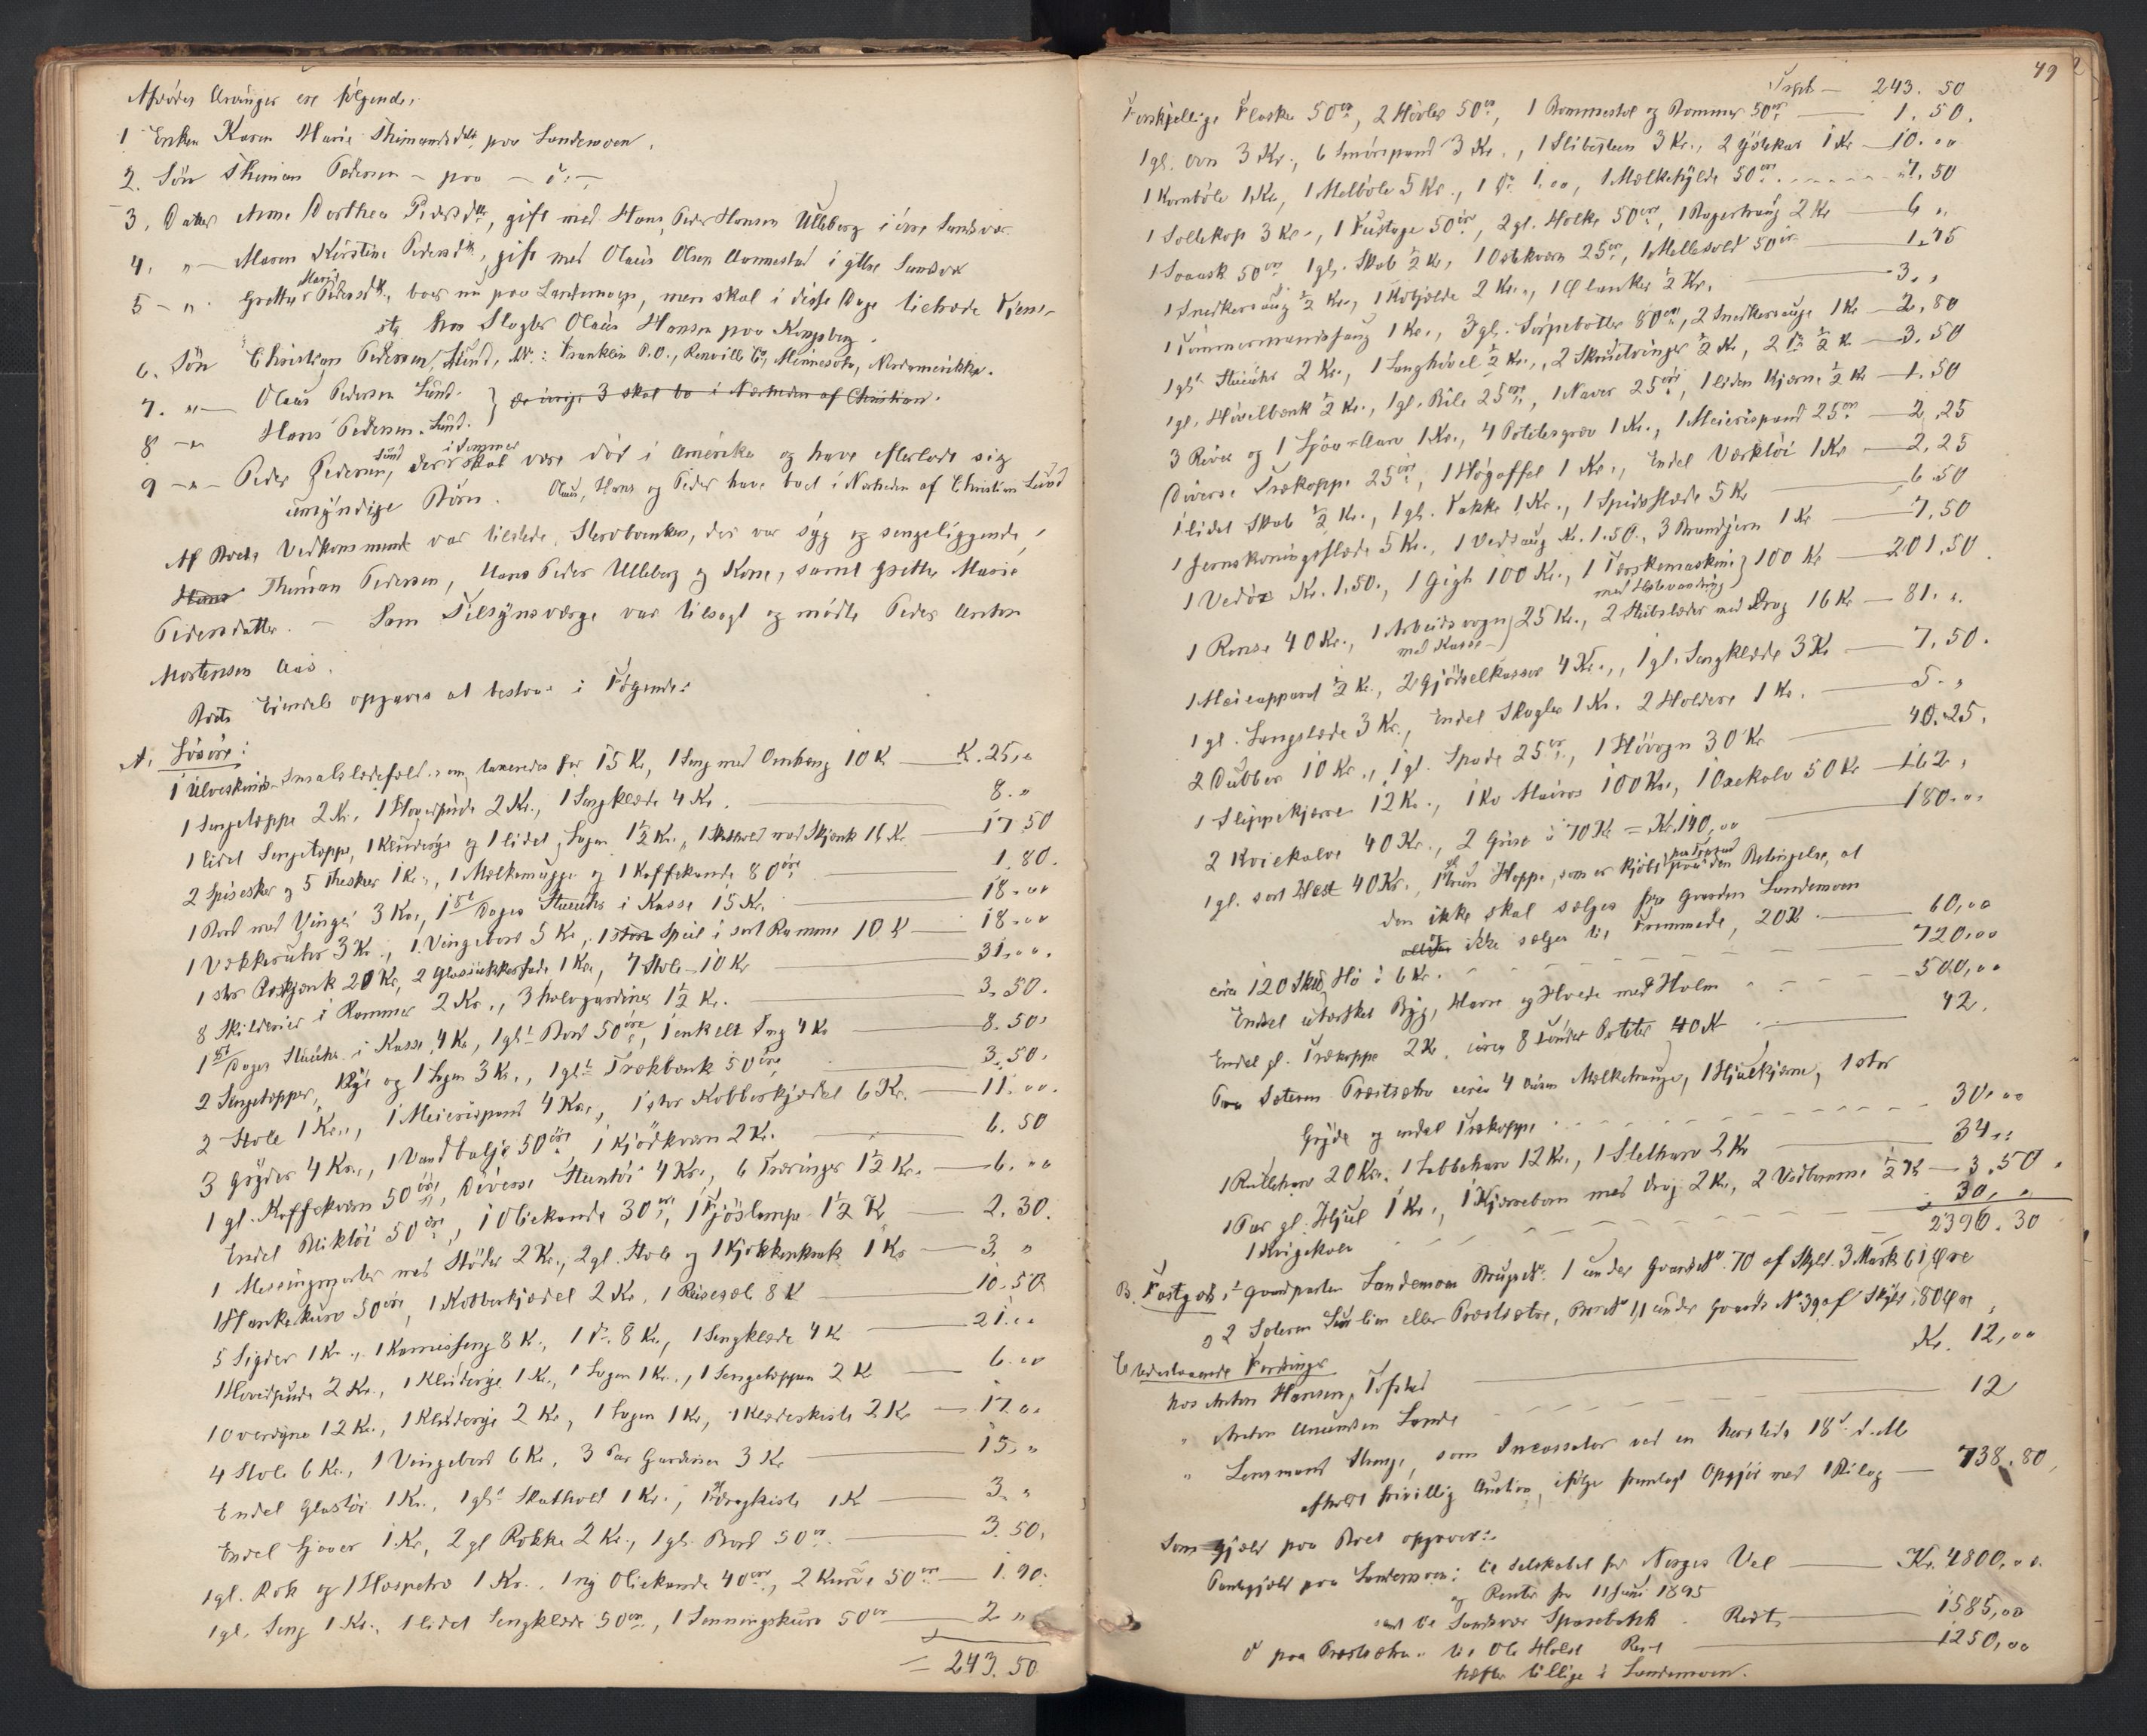 Afdødes Arvinger ere følgende:
1 Enken Karen Marie Thimansdtr. paa Sandemoen.
2. Søn Thiman Pedersen – paa – do –
3. Datter Anne Dorthea Pedersdtr, gift med Hans Peder Hansen Ulleberg i øvre Sandsvær
4. " — Maren Kirstine Pedersdtr, gift med Olaus Olsen Aannestad i ytre Sandsvær
5 – " Grethe Marie Pedersdtr, boer nu paa Sandemoen, men skal i disse Dage tiltræde Tjene-
ste hos Slagter Olaus Hansen paa Kongsberg.
6. Søn Christian Pedersen Lund, Adr.: Franklin P.O., Renville Co, Minnesota, Nordamerikka.
7. " — Olaus Pedersen Lund.
8 – " Hans Pedersen Lund. } de øvrige 3 skal bo i Nærheden af Christian.
9 – " – Peder Pedersen Lund, der i Sommer skal være død i Amerika og have efterladt sig
umyndige Børn. Olaus, Hans og Peder have boet i Nærheden af Christian Lund
Af Boets Vedkommende var tilstede Stervboenken, der var syg og sengeliggende,
Hans Thiman Pedersen, Hans Peder Ulleberg og Kone, samt Grethe Marie
Pedersdatter. – Som Tilsynsværge var tilsagt og mødte Peder Anton
Mortensen Aas.
Boets Eiendele opgaves at bestaa i Følgende:
A. Løsøre:
1 Ulveskinds Smalslædefeld, som taxeredes for 15 Kr, 1 Seng med Omhæng 10 K — K. 25,"
1 Sengetæppe 2 Kr. 1 Hovedpude 2 Kr., 1 Sengklæde 4 Kr. — 8. "
1 lidet Sengetæppe, 1 Kluderyе og 1 lidet Lagen 1½ Kr., 1 Skathold med Skjænk 16 Kr. — 17.50
2 Spiseskeer og 5 Theskeer 1 Kr., 1 Melkemugge og 1 Kaffekande 80 øre — 1.80.
1 Bord med Vinger 3 Kr., 1 8te Dages Stueuhr i Kasse 15 Kr. — 18."
1 Vækkeruhr 3 Kr., 1 Vingebord 5 Kr, 1 stort Speil i sort Ramme 10 K — 18."
1 stor Bordskjænk 20 Kr, 2 Glassukkerfade 1 Kr, 7 Stole 10 Kr — 31."
8 Skilderier i Rammer 2 Kr., 3 halvgardiner 1½ Kr. — 3.50.
1 8te Dages Stueuhr i Kasse 4 Kr, 1 glt Bord 50 øre, 1 enkelt Seng 4 Kr — 8.50.
2 Sengetæpper, 1 Rye og 1 Lagen 3 Kr., 1 glt Trækbænk 50 øre — 3.50.
2 Stole 1 Kr., 1 Meierispand 4 Kr., 1 stor Kobberkjædel 6 Kr. — 11."
3 Gryder 4 Kr., 1 Vandbalje 50 øre 1 Kjødkværn 2 Kr. — 6.50
1 gl. Kaffekværn 50 øre, Diverse Stentøi 4 Kr., 6 Træringer 1½ Kr. — 6."
Endel Bliktøi 50 øre, 1 Oliekande 30 øre, 1 Fjøslampe 1½ K — 2.30.
1 Messingmorter med Støder 2 Kr., 2 gl. Stole og 1 Kjøkkenkrak 1 Kr — 3. "
1 Hankekurv 50 øre, 1 Kobberkjædel 2 Kr. 1 Reisesæl 8 K — 10.50
5 Sigder 1 Kr., 1 Kanniseng 8 K., 1 do 8 Kr., 1 Sengklæde 4 K — 21."
1 Hovedpude 2 Kr., 1 Kluderye 1 Kr., 1 Lagen 1 Kr., 1 Sengetæppe 2 K — 6."
1 Overdyne 12 Kr., 1 Kluderye 2 Kr., 1 Lagen 1 Kr, 1 Klædeskiste 2 Kr — 17."
4 Stole 6 Kr., 1 Vingebord 6 Kr. 3 Par Gardiner 3 Kr — 15."
Endel Glastøi 1 Kr., 1 glt Skathold 1 Kr., 1 gl Dragkiste 1 K — 3. "
Endel Fjøver 1 Kr, 2 gl Rokke 2 Kr., 1 gl. Bord 50 ør — 3.50.
1 gl. Rok og 1 Haspetræ 1 Kr. 1 ny Oliekande 40 øre, 2 Kurve 50 ør — 1.90.
1 gl. Seng 1 Kr., 1 lidet Sengklæde 50 ør., 1 Senningskurv 50 ør — 2 "
= 243.50
49
Trspt — 243.50
Forskjellige Flasker 50 ør, 2 Høvler 50 ør, 1 Brommestol og Brommer 50 ør — 1.50.
1 gl. Ovn 3 Kr., 6 Smørspand 3 Kr., 1 Slibesteen 3 Kr., 2 Gjølekar 1 Kr — 10."
1 Kornbøle 1 Kr, 1 Melbøle 5 Kr., 1 do 1,", 1 Mælkehylde 50 ør. — 7.50
1 Soldekop 3 Kr., 1 Fustage 50 øre, 2 gl. Holke 50 øre, 1 Bagertraug 2 Kr — 6 "
1 50 øre 1 gl. Skab ½ Kr, 1 Ostkværn 25 ør, 1 Mellesold 50 ør — 1.75
1 Snedkersaug ½ Kr., 1 Kobjælde 2 Kr., 1 Q lænker ½ Kr. — 3."
1 Tømmermandssaug 1 Kr., 3 gl. Sirpebøtter 80 ør, 2 Snedkersauge 1 Kr — 2.80
1 glt Stueuhr 2 Kr., 1 Langhøvel ½ Kr., 2 Skruetvinger ½ Kr, 2 do ½ Kr — 3.50
1 gl. Høvelbænk ½ Kr., 1 gl. Bile 25 øre, 1 Naver 25 øre, 1 liden Kjærne ½ Kr — 1.50
3 River og 1 Ljaa-Aarv 1 Kr., 4 Potetesgrev 1 Kr., 1 Meierispand 25 ør — 2.25
Diverse Trækopper 25 øre, 1 Høgaffel 1 Kr., Endel Værktøi 1 Kr — 2.25
1 lidet Skab ½ Kr., 1 gl. Bakke 1 Kr., 1 Spidsslæde 5 Kr — 6.50
1 Jernskoningsslæde 5 Kr., 1 Vedsaug Kr. 1.50., 3 Brandjern 1 Kr — 7.50
1 Vedøx Kr. 1.50., 1 Gigh 100 Kr., 1 Tærskemaskine med Hestevandring } 100 Kr — 201.50.
1 Ronse 40 Kr., 1 Arbeidsvogn med Kasse } 25 Kr., 2 Stutslæder med Drag 16 Kr — 81."
1 Meieapparat ½ Kr., 2 Gjødselkasser 4 Kr., 1 gl. Sengklæde 3 Kr — 7.50.
1 gl. Langslæde 3 Kr., Endel Skagler 1 Kr. 2 Holdere 1 Kr. — 5."
2 Dubber 10 Kr., 1 gl. Spade 25 ør, 1 Høvogn 30 Kr — 40.25.
1 Slippekjærre 12 Kr., 1 Ko Mairos 100 Kr., 1 Oxekalv 50 Kr — 162."
2 Kviekalve 40 Kr., 2 Grise à 70 Kr = Kr. 140,"" — 180."
1 gl. sort Hest 40 Kr., 1 gl brun Hoppe, som er kjøbt paa den Betingelse, at
den ikke skal sælges fra Gaarden Sandemoen
ikke sælges til Fremmede, 20 K — 60,"
circa 120 Skpd Hø à 6 Kr. — 720,"
Endel utærsket Byg, Havre og Hvede med Halm — 500,"
Endel gl. Trækopper 2 Kr. circa 8 Tønder Poteter 40 K — 42.
Paa Sæteren Præstsætra circa 4 dusin Mælketrauge, 1 Hjulkjærne, 1 stor
Gryde og endel Trækopper — 30,"
1 Rulleharv 20 Kr. 1 Labbeharv 12 Kr., 1 Sletharv 2 Kr — 34."
1 Par gl. Hjul 1 Kr., 1 Kjærrebom med drag 2 Kr., 2 Vedbomme ½ Kr — 3.50.
1 Kvigekalv — 30,"
2396.30
B. Fastgods, 1 Gaardparten Sandemoen Brugs No. 1 under Gaards No 70 af Skyld 3 Mark 61 Øre
og 2 Sæteren Lien eller Præstsætra, Brs No 11 under Gaards No 39 af Skyld 80 Øre,
C Udestaaende Fordringer
hos Anton Hansen Tofstad — Kr. 12,"
" Anton Amundsen Sande — 12
" Lensmand Stenge, som Incassator ved en herstede 18de d.M.
afholdt frivillig Auction, ifølge fremlagt Opgjør med 1 Bilag — 738.80,
Som Gjæld paa Boet opgaves:
Pantegjæld paa Sandemoen: til Selskabet for Norges Vel — Kr. 4800,"
og Renter fra 11 Juni 1895
samt til Sandsvær Sparebank. Rest — 1585,"
do paa Præstsætra til Ole Holst Rest — 1250,"
hæfter tillige i Sandemoen.